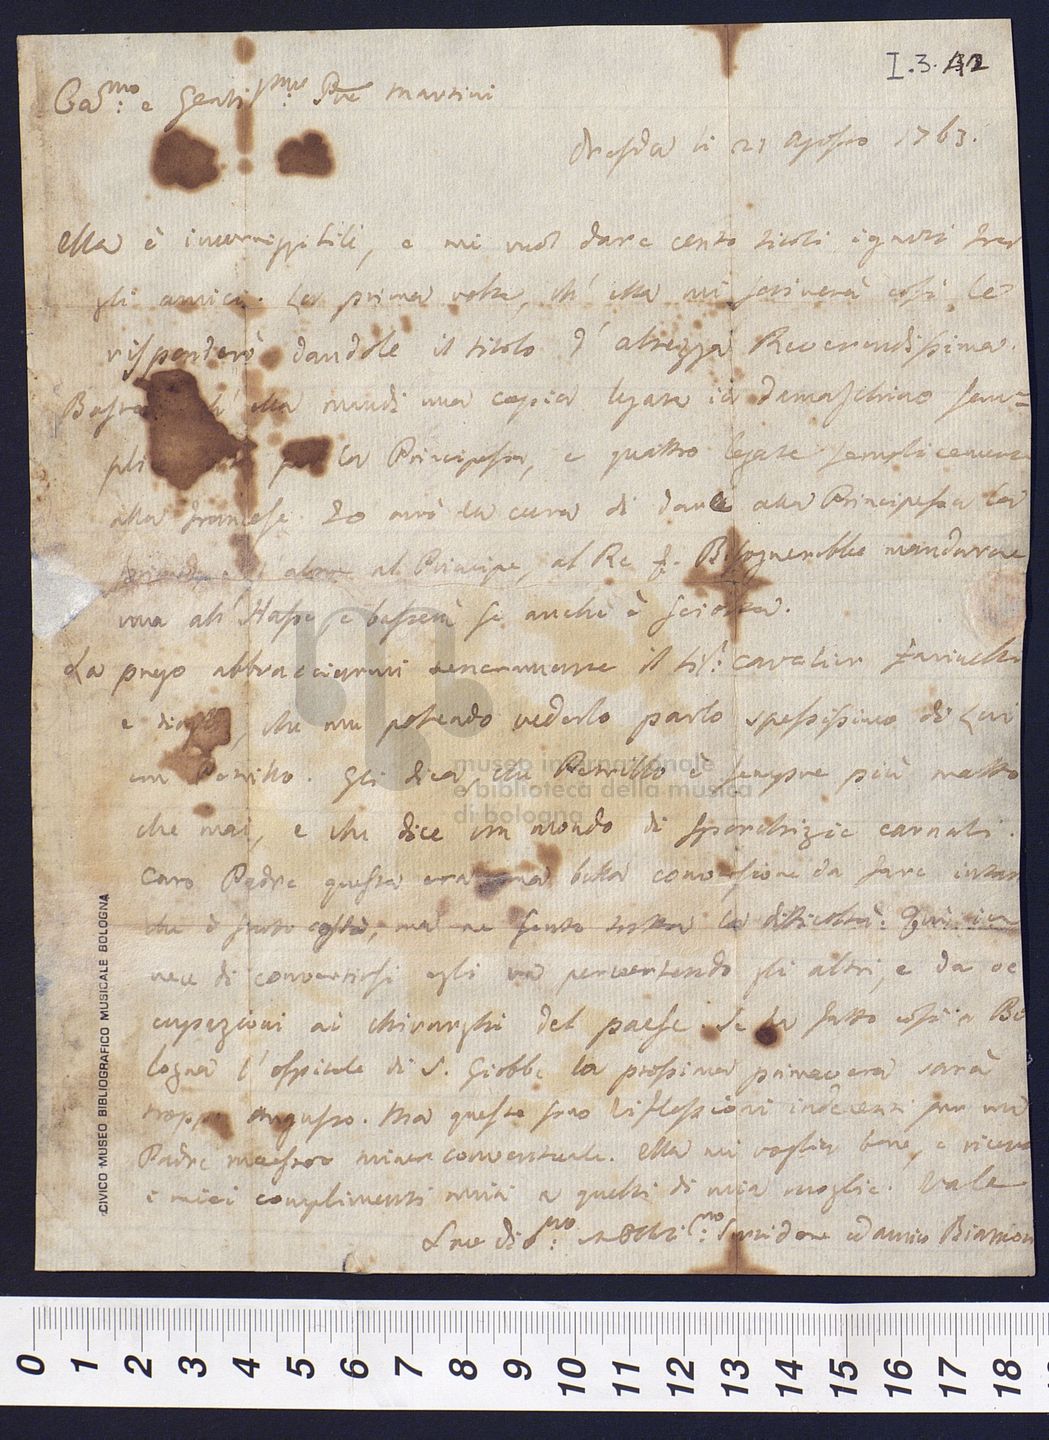 I.3.42
Ca.mo e Gentis.mo Pre Martini
Dresda li 21 Agosto 1763.
Ella è incorrigibile, e mi vuol dare cento titoli ignoti fra
gli amici. La prima volta, ch' ella mi scriverà così le
risponderò dandole il titolo d' altezza Reverendissima.
Basta ch' ella mandi una copia legata in damaschino sem=
pli per la Principessa, e quattro legate semplicemente
alla francese. Io avrò la cura di darle alla Principessa la
al Principe, al Re &. Bisognerebbe mandarne
una all' Hasse, e basterà se anche è sciolta.
La prego abbracciarmi teneramente il Sig: Cavalier Farinelli
e dirgli, che non potendo vederlo parlo spessissimo di Lui
con Petrillo. Gli dica, che Petrillo è sempre più matto
che mai, e che dice un mondo di sporchizie carnali.
Caro Padre questa era una bella conversione da fare
che è stato costà, ma ne sento tutta la difficoltà. Qui in
vece di convertirsi egli va pervertendo gli altri, e da oc
cupazioni ai chirurghi del paese. Se ha fatto così a Bo
logna l' ospitale di S. Giobbe la prossima primavera sarà
troppo angusto. Ma queste sono riflessioni indecenti per un
Padre maestro minor conventuale. Ella mi voglia bene, e riceva
i miei complimenti uniti a quelli di mia moglie. Vale
Suo Div.mo ed Obbl.mo Servidore ed amico Bianconi
museo internazionale
e biblioteca della musica
di bologna
CIVICO MUSEO BIBLIOGRAFICO MUSICALE BOLOGNA
0 1 2 3 4 5 6 7 8 9 10 11 12 13 14 15 16 17 18